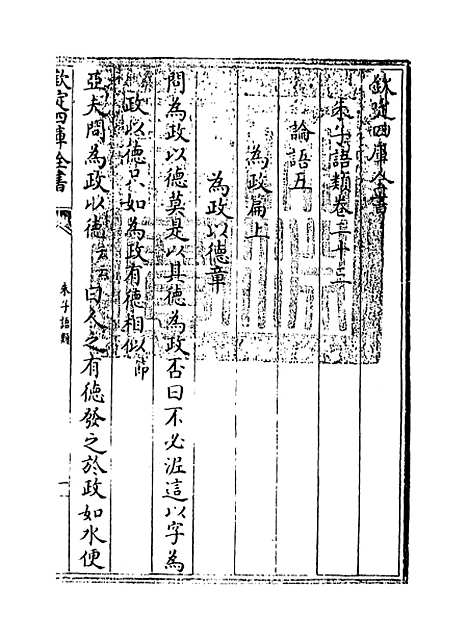 欽定四庫全書
朱子語類卷二十三
論語五
為政篇上
為政以德章
問為政以德莫是以其德為政否曰不必泥這以字為
政以德只如為政有德相似節
亞夫問為政以德云云曰人之有德發之於政如水便
欽定四庫全書
朱子語類
一